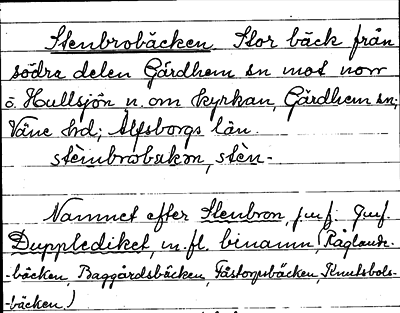 Stenbrobäcken. Stor bäck från
södra delen Gärdhem sn mot norr
o. Hullsjön n. om kyrkan, Gärdhem sn;
Väne hd; Älfsborgs län.
stèmbrobäkən, stèn-
Namnet efter Stenbron, jmf. Jmf.
Dupplediket, m. fl. binamn (Råglands-
-bäcken, Baggårdsbäcken, Fästorpsbäcken, Knutsbols-
-bäcken.)